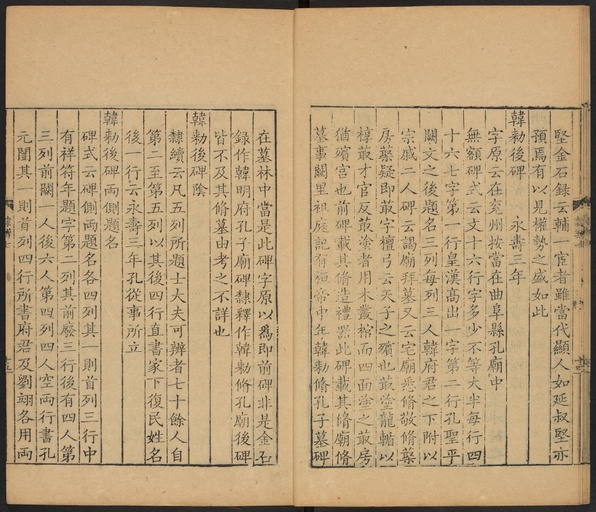 堅金石錄云輔一宦者雖當代顯人如延叔堅亦
預焉有以見權勢之盛如此
韓勑後碑 永壽三年
字原云在兖州按當在曲阜縣孔廟中
無額碑式云文十六行字多少不等大半每行四
十六七字第一行皇漢高出一字第二行孔聖乎
闕文之後題名三列每列三人韓府君之下附以
宗戚二人碑云謁廟拜墓又云宅廟
房藂疑即菆字檀弓云天子之殯也菆塗龍輴以
椁菆才官反菆塗者用木叢棺而四面塗之菆房
猶殯宮也前碑載其脩造禮器此碑載其脩廟脩
墓事闕里祖庭記有桓帝中年韓勑脩孔子墓碑
在墓林中當是此碑字原以爲即前碑非是金石
錄作韓明府孔子廟碑隸釋作韓勑脩孔廟後碑
皆不及其脩墓由考之不詳也
韓勑後碑陰
隸續云凡五列所題士大夫可辨者七十餘人自
第二至第五列以其後四行直書家下復民姓名
後一行云永壽三年孔從事所立
韓勑後碑兩側題名
碑式云碑側兩題名各四列其一則首列三行中
有祥符年題字第二列其前廢三行後有四人第
三列前闕一人後六人第四列四人空兩行書孔
元闓其一則首列四行所書府君及劉翊各用兩